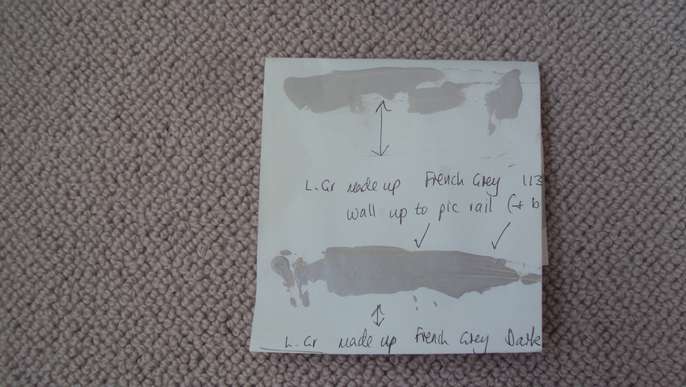 L. Gr made up French Grey 113
wall up to pic rail (+ b
L. Gr made up French Grey Dark